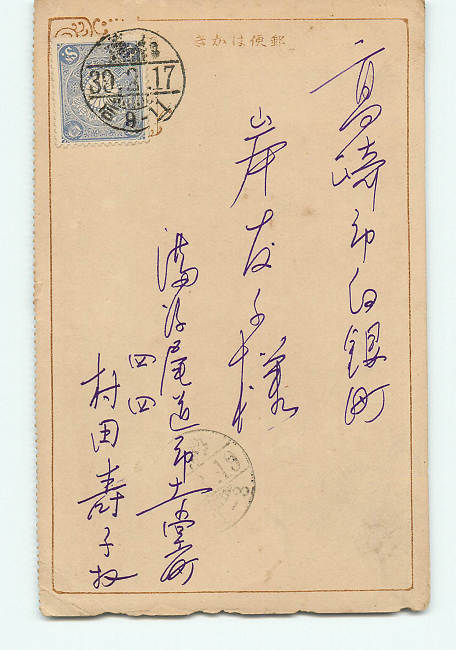 郵便はかき
高崎市白銀町
岸友子様
尾道市土堂町
四四
村田寿子拝
39.2.17
9-11